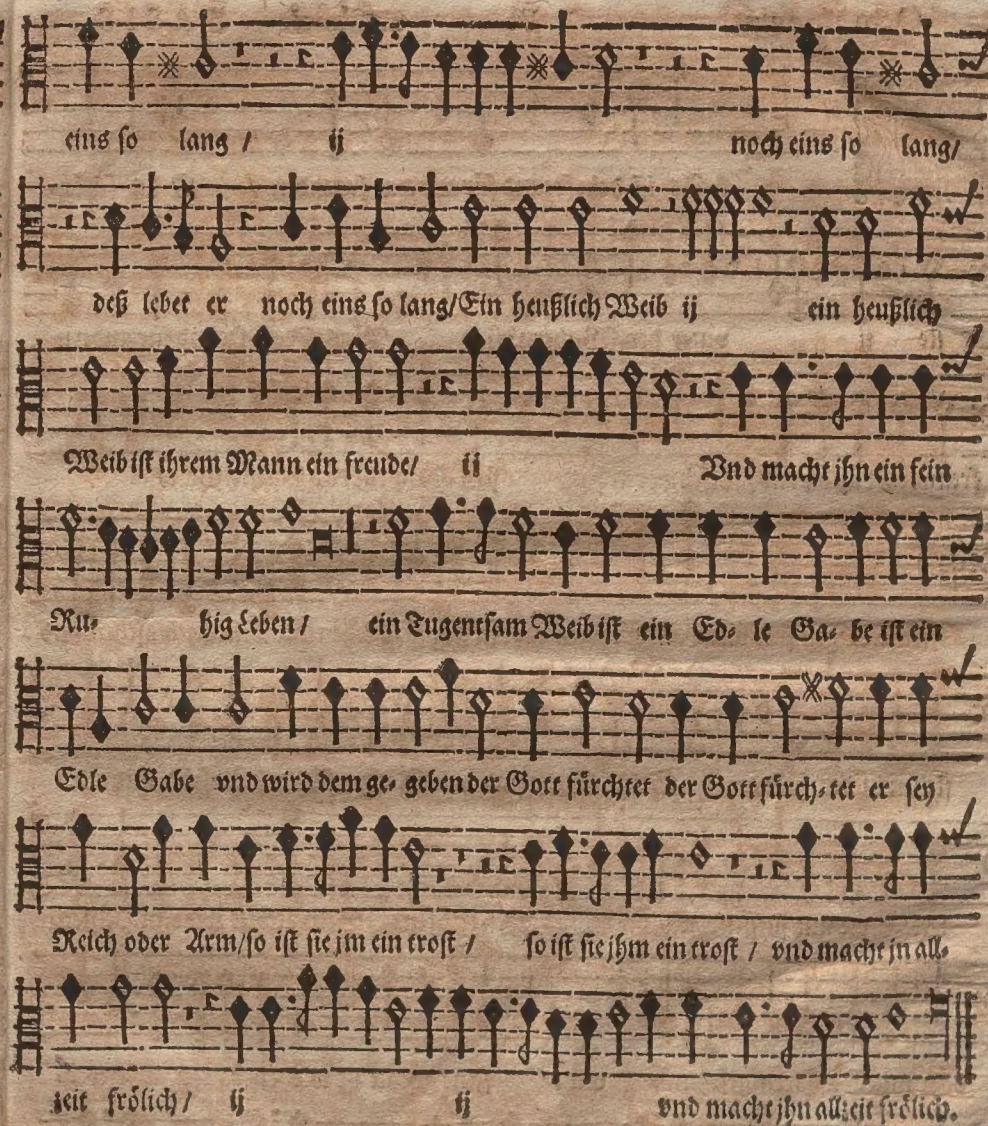 eins so lang / ij noch eins so lang/
deß lebet er noch eins so lang/Ein heußlich Weib ij ein heußlich
Weib ist ihrem Mann ein freude/ ij Vnd macht jhn ein fein
Ru- hig Leben / ein Tugentsam Weib ist ein Ed- le Ga- be ist ein
Edle Gabe vnd wird dem ge- geben der Gott fürchtet der Gott fürch- tet er sey
Reich oder Arm/so ist sie jm ein trost / so ist sie jhm ein trost / vnd macht jn all-
zeit frölich/ ij ij vnd macht jhn allzeit frölich.